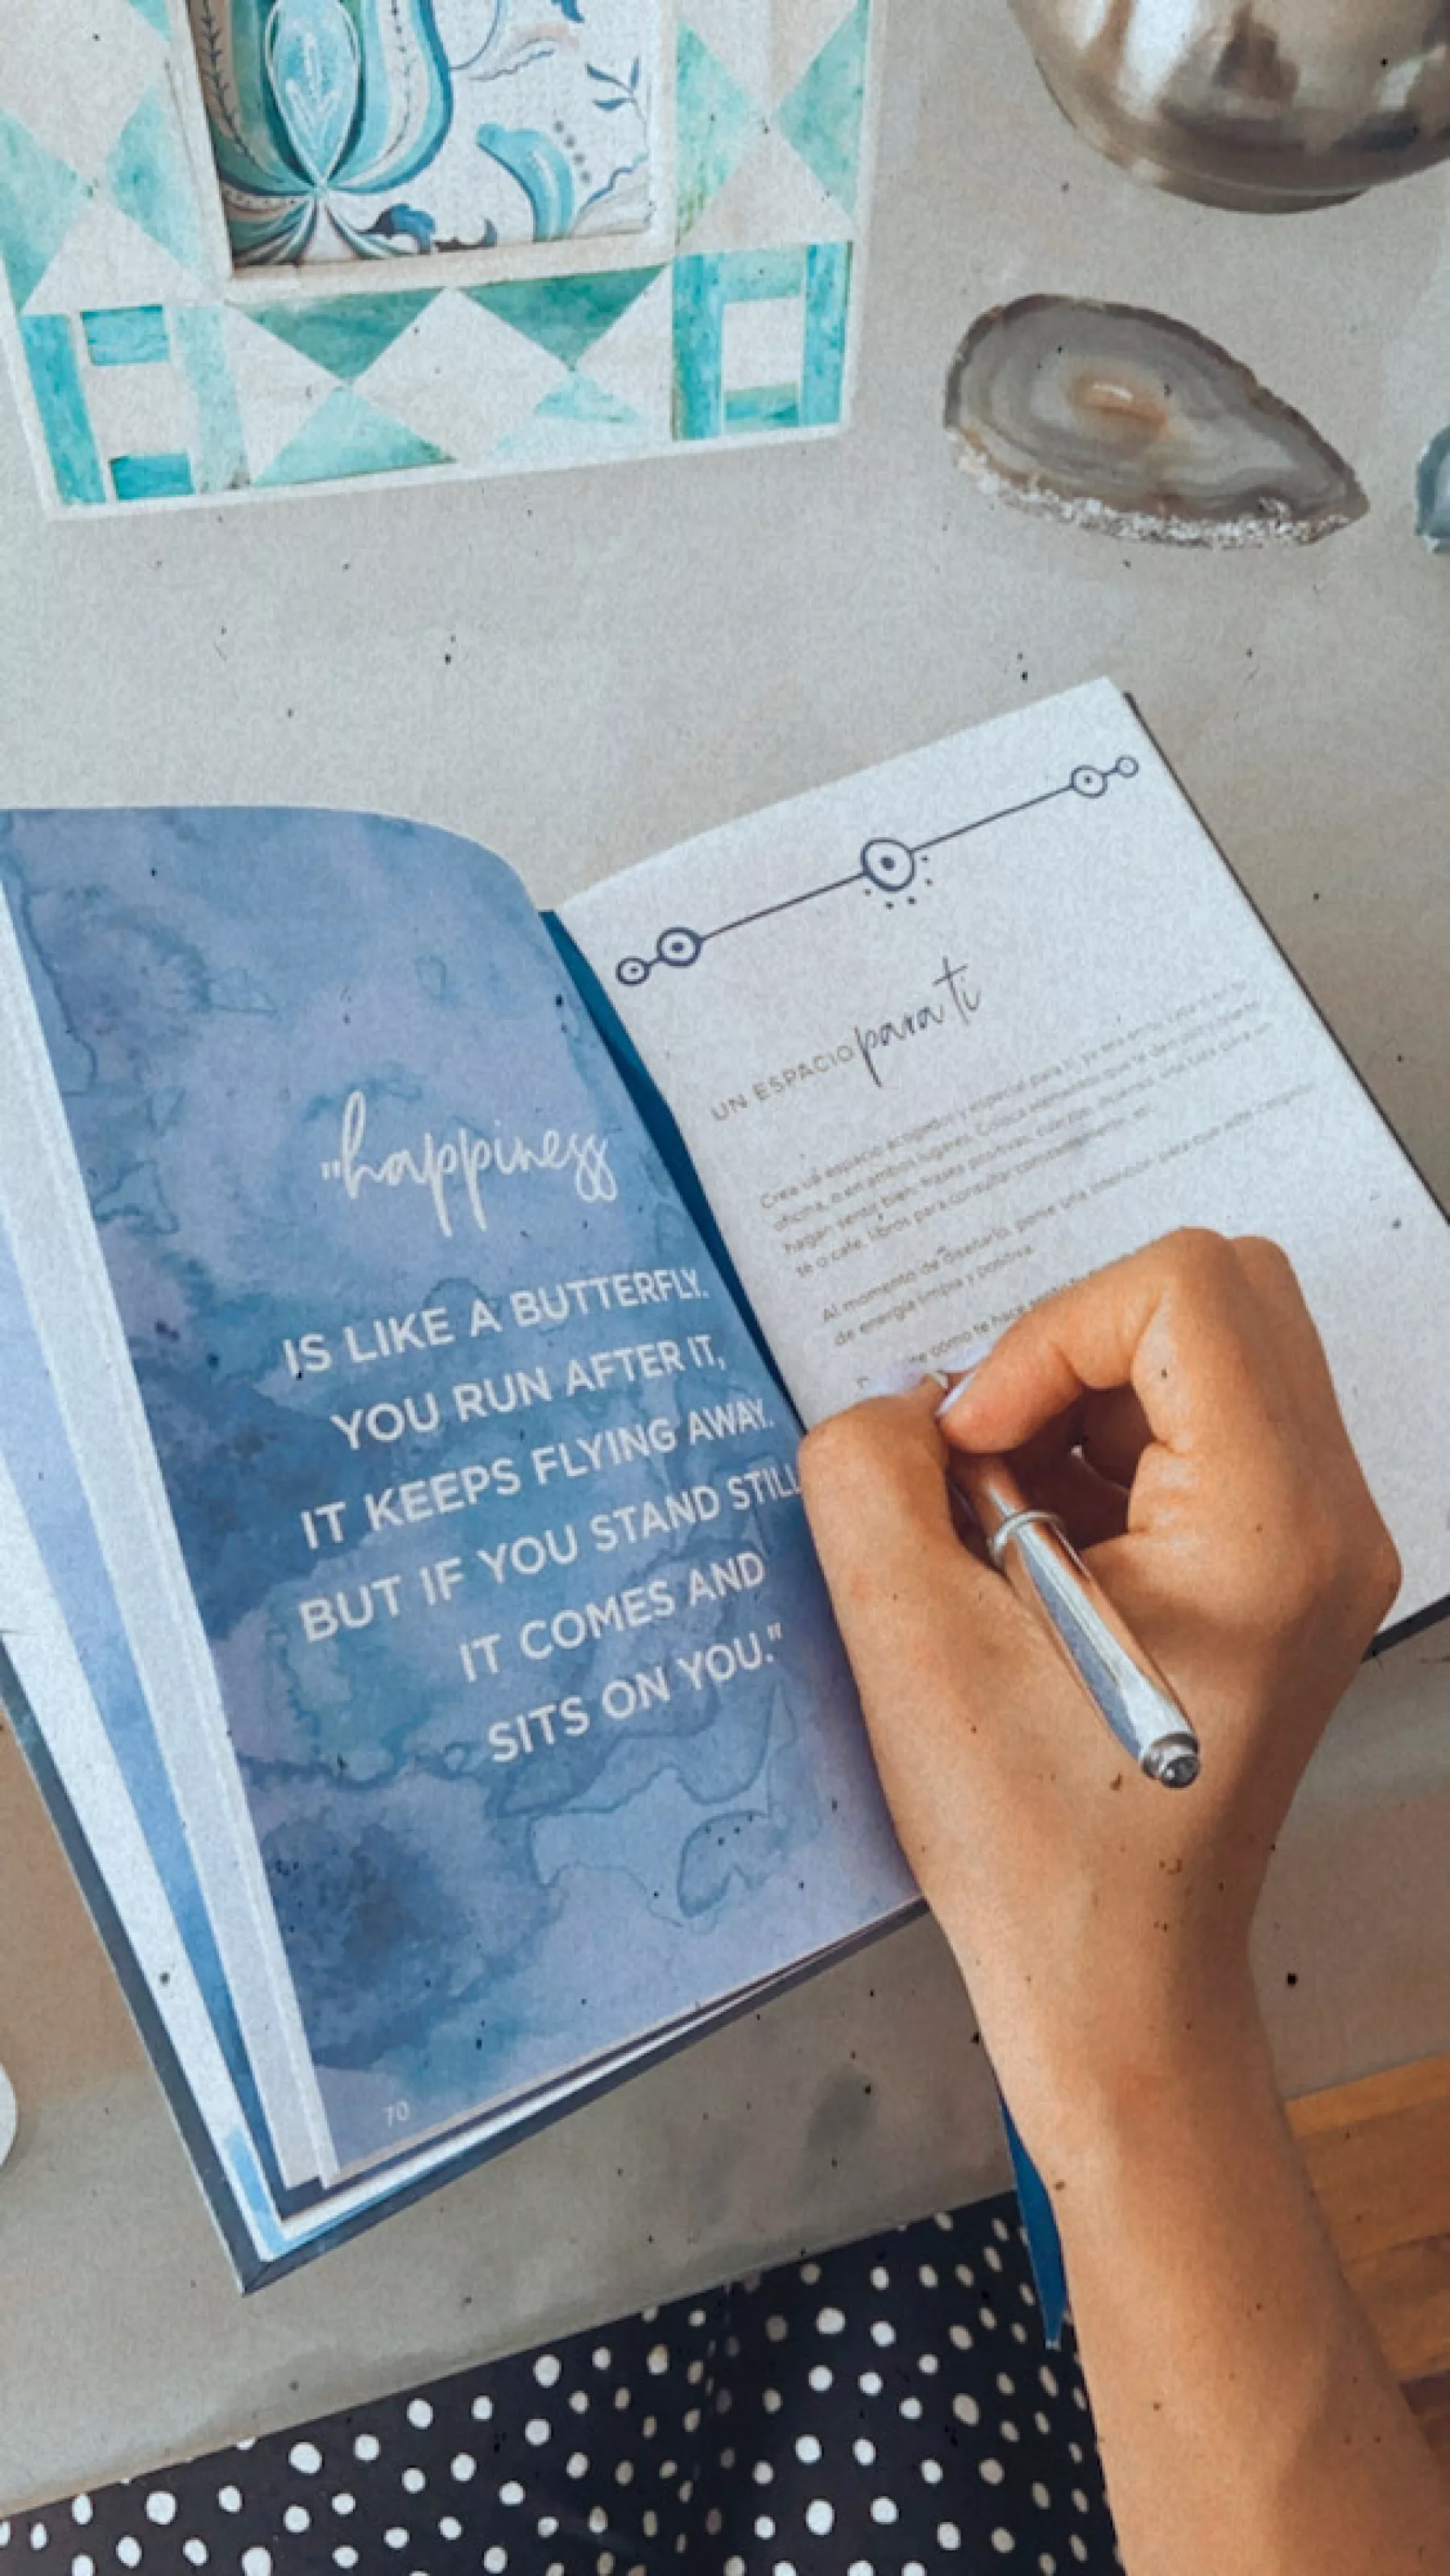 "happiness
IS LIKE A BUTTERFLY.
YOU RUN AFTER IT,
IT KEEPS FLYING AWAY.
BUT IF YOU STAND STILL
IT COMES AND
SITS ON YOU."
70
UN ESPACIO para ti
Crea un espacio acogedor y especial para ti, ya sea en tu casa o en tu
oficina, o en ambos lugares. Coloca elementos que te den gusto y
hagan sentir bien: frases positivas, cuarzos, una taza para un
té o café, libros para consultar constantemente, etc.
Al momento de diseñarlo, ponle una intención para que esté
de energía limpia y positiva.
cómo te hace sentir